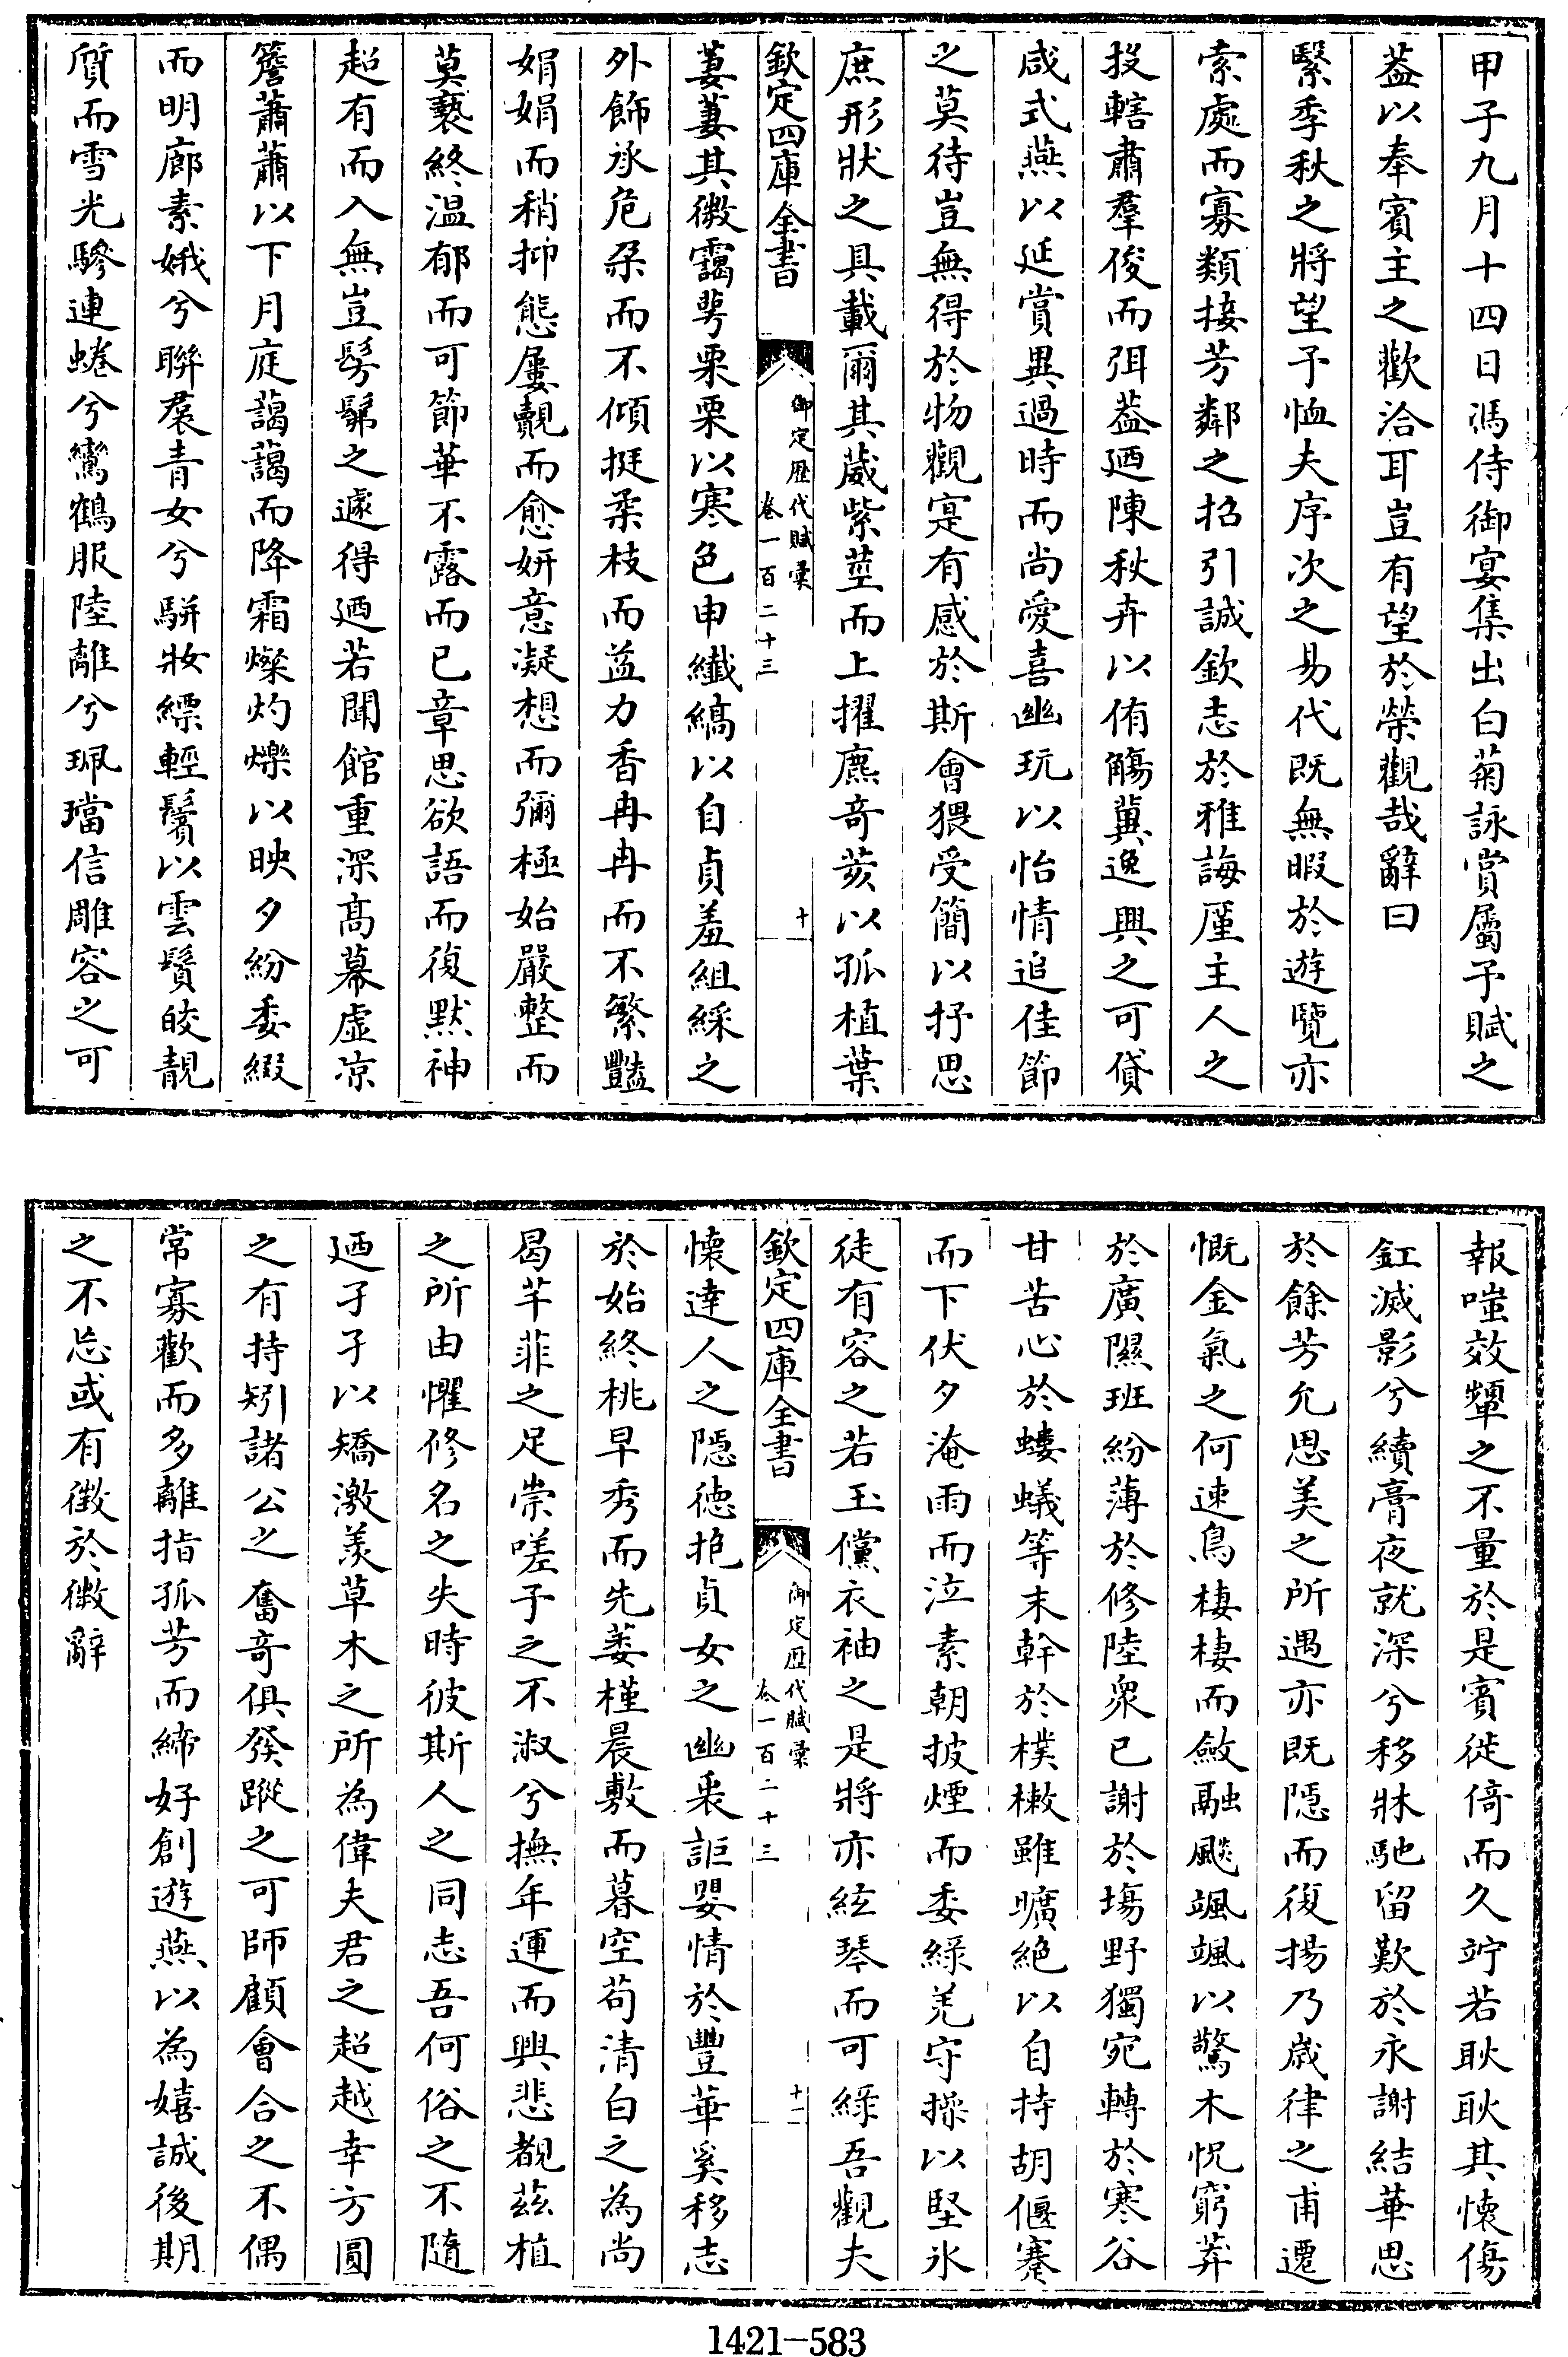 甲子九月十四日馮侍御宴集出白菊詠賞屬予賦之
葢以奉賓主之歡洽耳豈有望於榮觀哉辭曰
繄季秋之將望予恤夫序次之易代既無暇於遊覽亦
索處而寡類接芳鄰之招引誠欽志於雅誨厪主人之
投轄肅羣俊而弭葢迺陳秋卉以侑觴冀逸興之可貸
咸式燕以延賞異過時而尚愛喜幽玩以怡情追佳節
之莫待豈無得於物觀寔有感於斯會猥受簡以抒思
庶形狀之具載爾其葳紫莖而上擢麃奇荄以孤植葉
欽定四庫全書
御定歷代賦彙
卷一百二十三
十
萋萋其微靄萼栗栗以寒色申纖縞以自貞羞組綵之
外飾承危朶而不傾挺柔枝而益力香冉冉而不繁豔
娟娟而稍抑態屢覿而愈妍意凝想而彌極始嚴整而
莫褻終温郁而可節華不露而已章思欲語而復默神
超有而入無豈髣髴之遽得迺若閒館重深髙幕虛凉
簷蕭蕭以下月庭藹藹而降霜燦灼爍以映夕紛委綴
而明廊素娥兮聯裙青女兮駢妝縹輕鬟以雲鬢皎靚
質而雪光驂連蜷兮鸞鶴服陸離兮珮璫信雕容之可
報嗤效顰之不量於是賓徙倚而久竚若耿耿其懷傷
釭滅影兮續膏夜就深兮移牀馳留歎於永謝結華思
於餘芳允思美之所遇亦既隱而復揚乃歳律之甫遷
慨金氣之何速鳥棲棲而斂融颷颯颯以驚木怳窮莽
於廣隰班紛薄於修陸衆已謝於塲野獨宛轉於寒谷
甘苦心於螻蟻等末幹於樸樕雖曠絶以自持胡偃蹇
而下伏夕淹雨而泣素朝披煙而委緑羌守操以堅氷
徒有容之若玉儻衣袖之是將亦絃琴而可綠吾觀夫
欽定四庫全書
御定歷代賦彙
卷一百二十三
十一
懷達人之隱徳抱貞女之幽裊詎嬰情於豐華奚移志
於始終桃早秀而先萎槿晨敷而暮空苟清白之為尚
曷芊菲之足崇嗟予之不淑兮撫年運而興悲覩茲植
之所由懼修名之失時彼斯人之同志吾何俗之不隨
迺孑孑以矯激羨草木之所為偉夫君之超越幸方圓
之有持矧諸公之奮奇俱發蹤之可師顧會合之不偶
常寡歡而多離指孤芳而締好創遊燕以為嬉誠後期
之不忘或有徵於微辭
1421-583